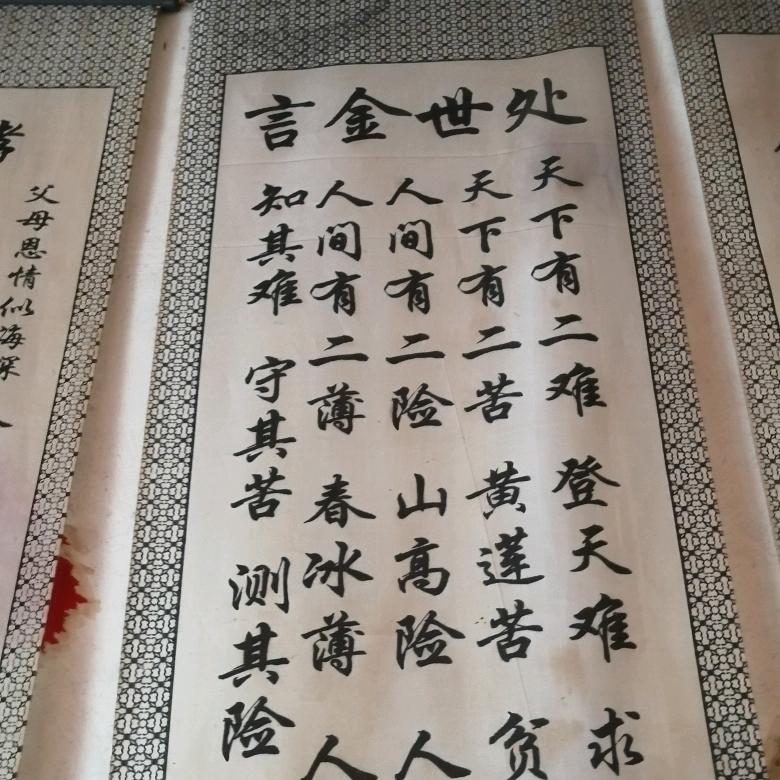 处世金言
天下有二难 登天难 求
天下有二苦 黄莲苦 贫
人间有二险 山高险 人
人间有二薄 春冰薄 人
知其难 守其苦 测其险
孝
父母恩情似海深
人